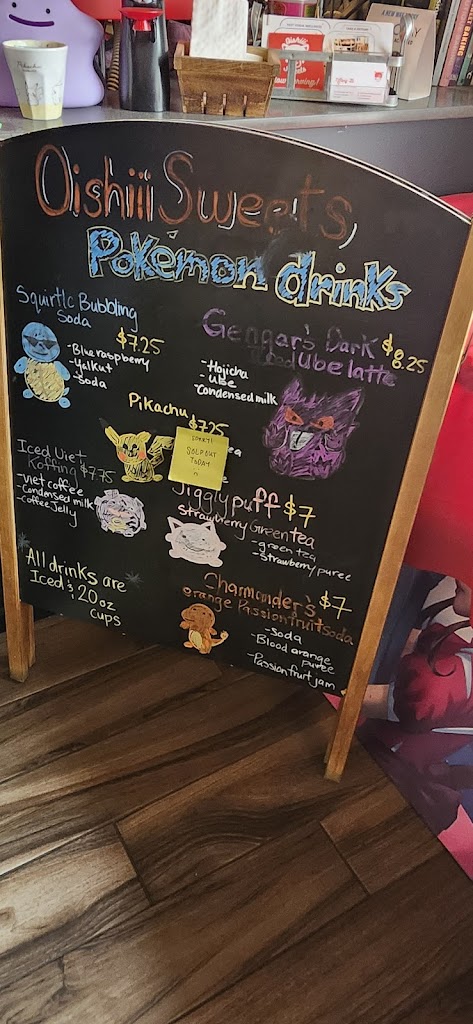 Oishiii Sweets
Pokémon drinks
Squirtle Bubbling
Soda $7.25
- Blue raspberry
- Yalkut
- Soda
Gengar's Dark $8.25
Ube latte
- Hojicha
- ube
- Condensed milk
Pikachu $7.25
SORRY!
SOLD OUT
TODAY
Iced Viet
Koffing $7.75
- Viet coffee
- Condensed milk
- Coffee Jelly
Jigglypuff $7
Strawberry Green tea
- green tea
- Strawberry puree
All drinks are
Iced & 20 oz
cups
Charmander's $7
orange Passionfruit soda
- Soda
- Blood orange
puree
- Passionfruit jam